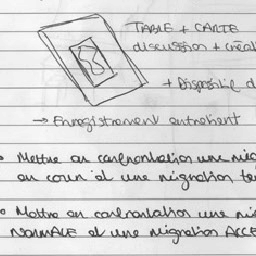 TABLE + CARTE
discussion + créat
+ Dispositif d
→ Enregistrement entretient
• Mettre en confrontation une mig
en cours et une migration te
• Mettre en confrontation une mi
NORMALE et une migration ACCE